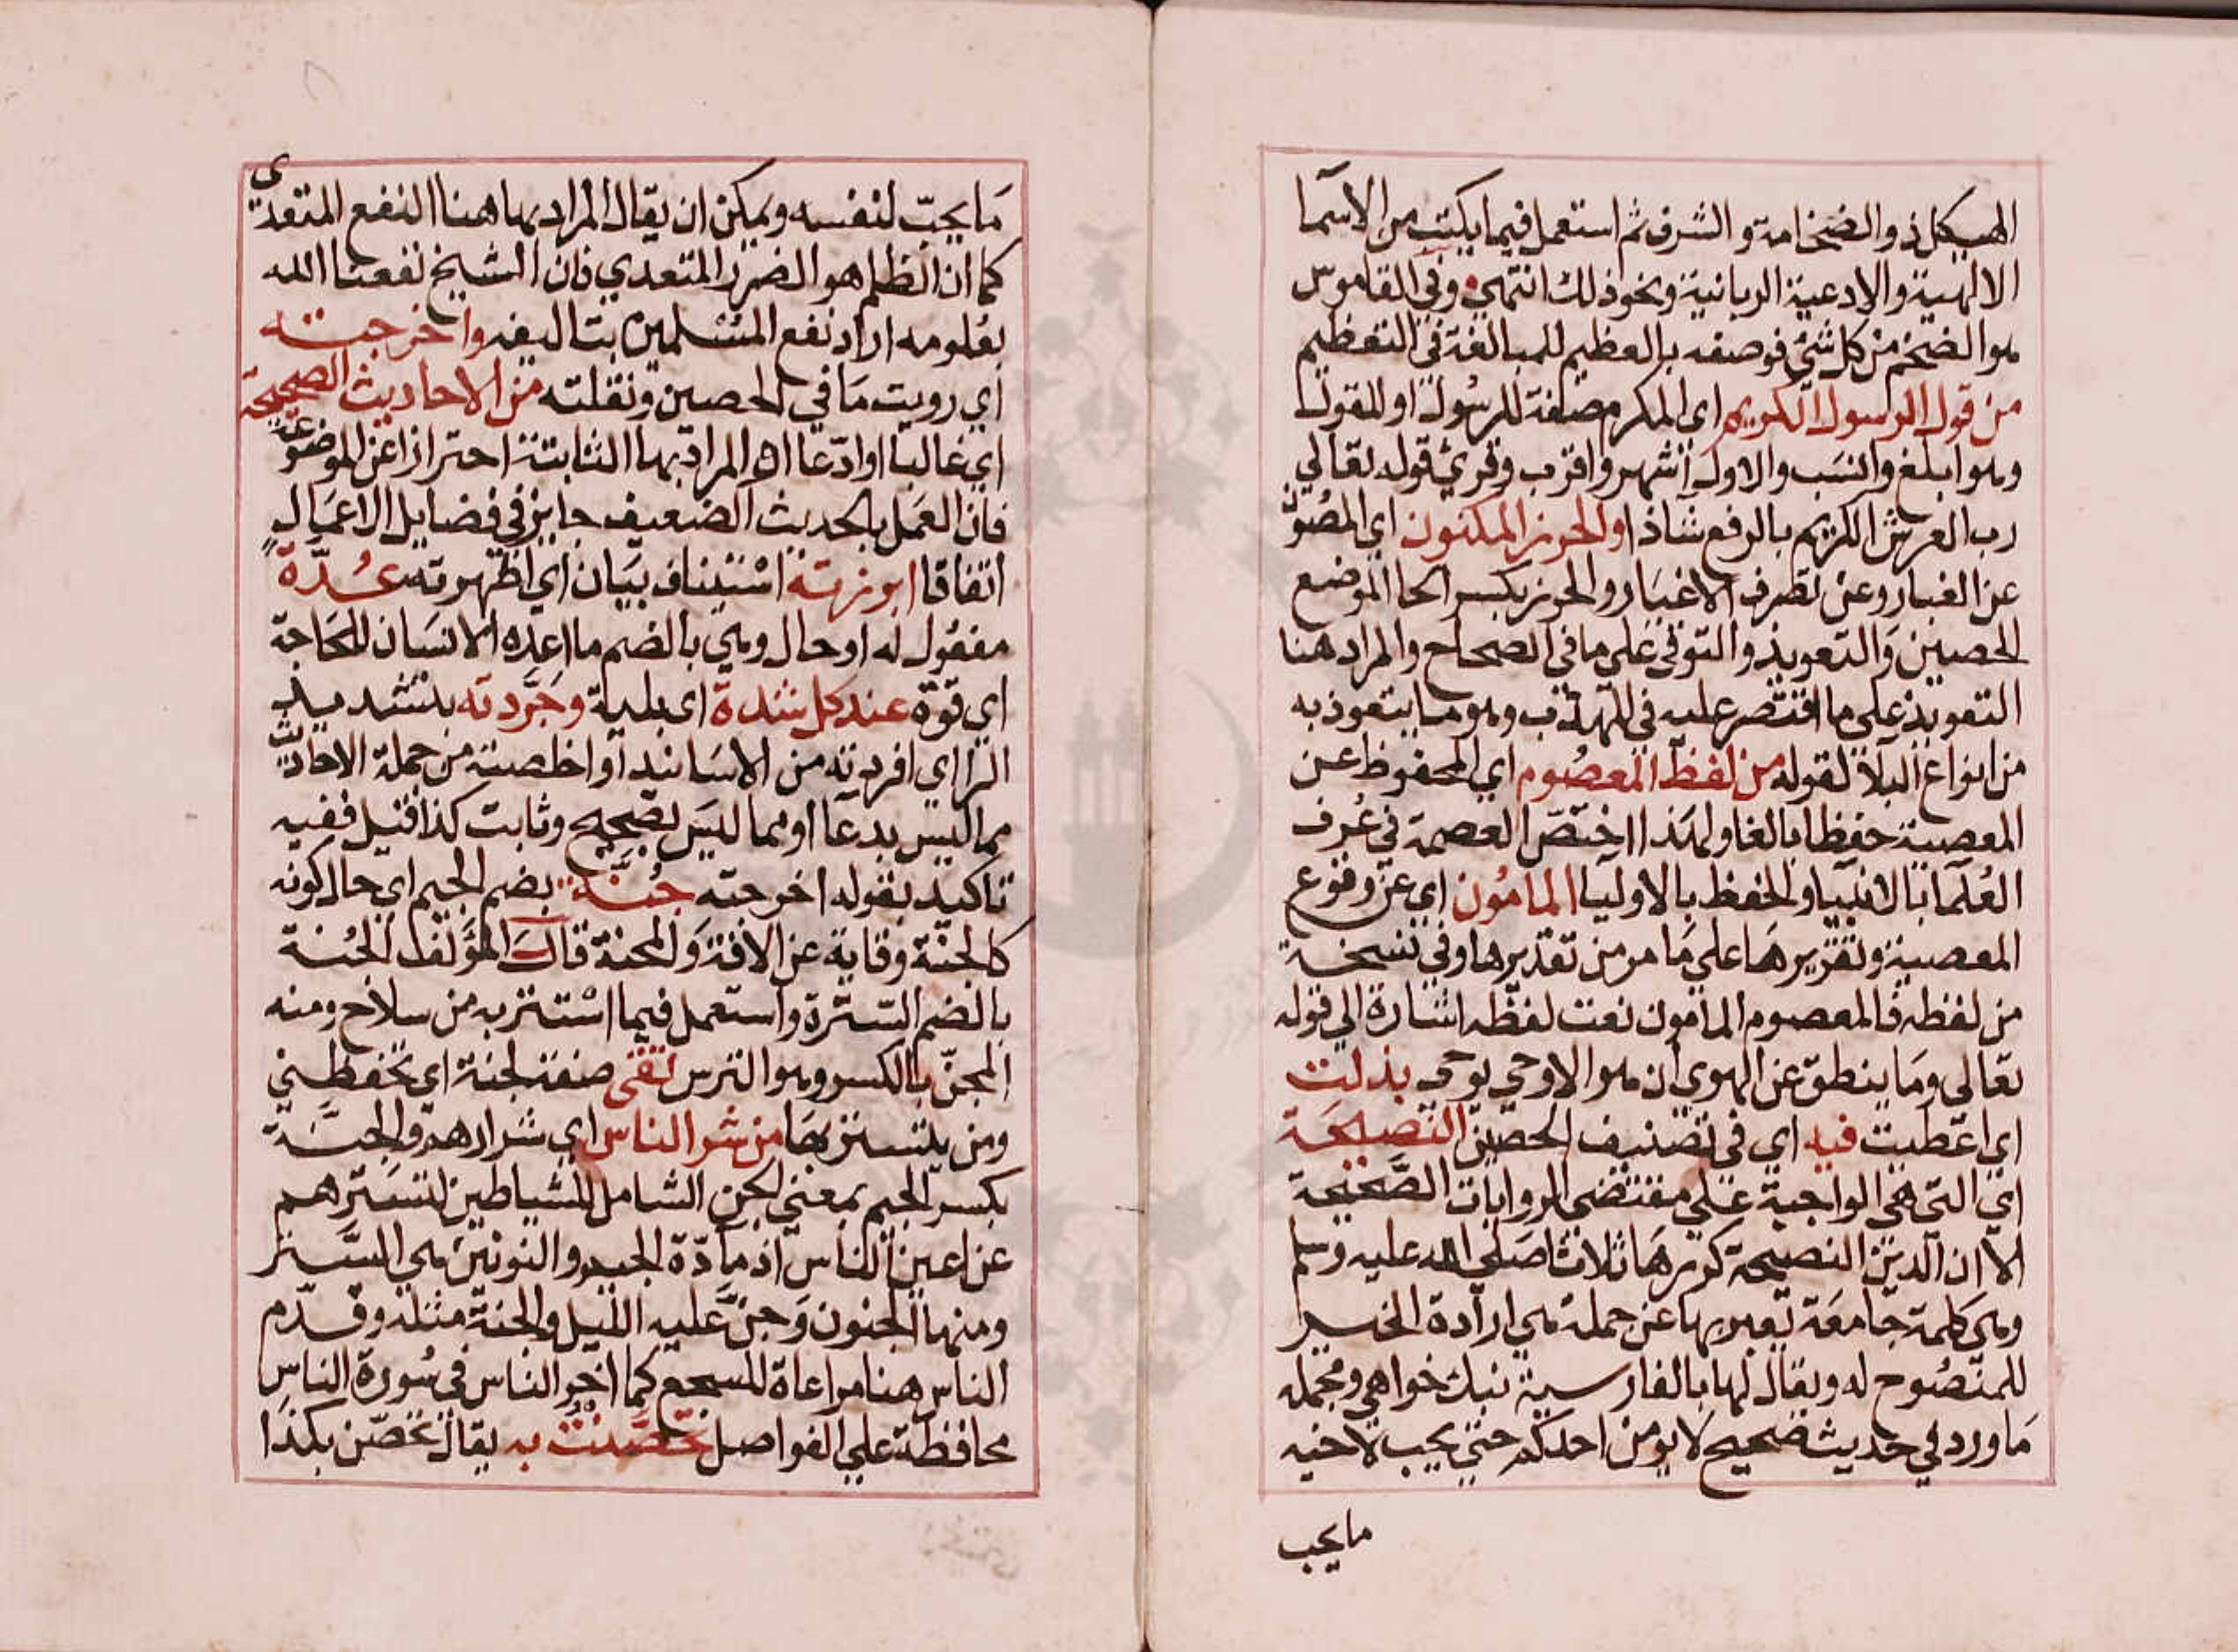 الهيكل ذو الضخامة والشرف ثم استعمل فيما يكتب من الاسما
الالهية والادعية الربانية ونحو ذلك انتهي وفي القاموس
هو الضخم من كل شيء فوصفه بالعظيم للمبالغة في التعظيم
من قول الرسول الكريم اي المكرم صفة للرسول او للقول
وهو ابلغ وانسب والاول اشهر واقرب وقريء قوله تعالي
رب العرش الكريم بالرفع شاذا والحرز المكنون اي المصون
عن الغبار وعن تصرف الاغيار والحرز بكسر الحا الموضع
الحصين والتعويذ والتوقي علي ما في الصحاح والمراد هنا
التعويذ علي ما اقتصر عليه في المهذب وهو ما يتعوذ به
من انواع البلا لقوله من لفظ المعصوم اي المحفوظ عن
المعصية حفظا بالغا ولهذا اختص العصمة في عرف
العلما بالانبيا والحفظ بالاوليا المامون اي عن وقوع
المعصية وتقريرها علي ما مر من تقديرها وفي نسخة
من لفظه فالمعصوم المامون نعت لفظه اشارة الي قوله
تعالي وما ينطق عن الهوي ان هو الا وحي يوحي بذلت
اي اعطيت فيه اي في تصنيف الحصين النصيحة
اي التي هي الواجبة علي مقتضي الروايات الصحيحة
الا ان الدين النصيحة كررها ثلاثا صلي الله عليه وسلم
وهي كلمة جامعة تعبر بها عن جملة هي ارادة الخير
للمنصوح له ويقال لها بالفارسية نيك خواهي ومجمله
ما ورد في حديث صحيح لا يومن احدكم حتي يحب لاخيه
ما يحب
ما يحب لنفسه ويمكن ان يقال المراد بها هنا النفع المتعدي
كما ان الظلم هو الضرر المتعدي فان الشيخ نفعنا الله
بعلومه اراد نفع المسلمين بتاليفه واخرجته
اي رويت ما في الحصين ونقلته من الاحاديث الصحيحة
اي غالبا او ادعا او المراد بها الثابتة احترازا عن الموضوعة
فان العمل بالحديث الضعيف جايز في فضايل الاعمال
اتفاقا ابرزته استيناف بيان اي اظهرته عدة
مفعول له او حال وهي بالضم ما اعده الانسان للحاجة
اي قوة عند كل شدة اي بلية وجردته بتشديد
الرا اي افردته من الاسانيد او اخلصته من جملة الاحاديث
مما ليس بدعا او مما ليس بصحيح وثابت كذا قيل ففيه
تاكيد بقوله اخرجته جنة بضم الجيم اي حال كونه
كالجنة وقاية عن الافة والمحنة قال المؤلف الجنة
بالضم السترة واستعمل فيما استتر به من سلاح ومنه
المجن بالكسر وهو الترس تقي صفة لجنة اي تحفظني
ومن يتستر بها من شر الناس اي شرارهم والجنة
بكسر الجيم بمعني الجن الشامل للشياطين لتسترهم
عن اعين الناس اذ مادة الجيم والنونين هي الستر
ومنها الجنون وجن عليه الليل والجنة مثله وقدم
الناس هنا مراعاة للسجع كما اخر الناس في سورة الناس
محافظة علي الفواصل تحصنت به يقال تحصن بكذا